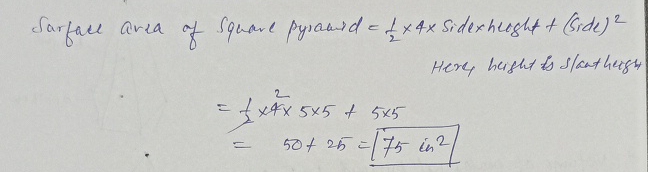 Surface area of Square pyramid = 1/2 x 4 x Side x height + (Side)²
Here, height is slant heigh
= 1/2 x 4 x 5 x 5 + 5 x 5
2
= 50 + 25 = 75 in²